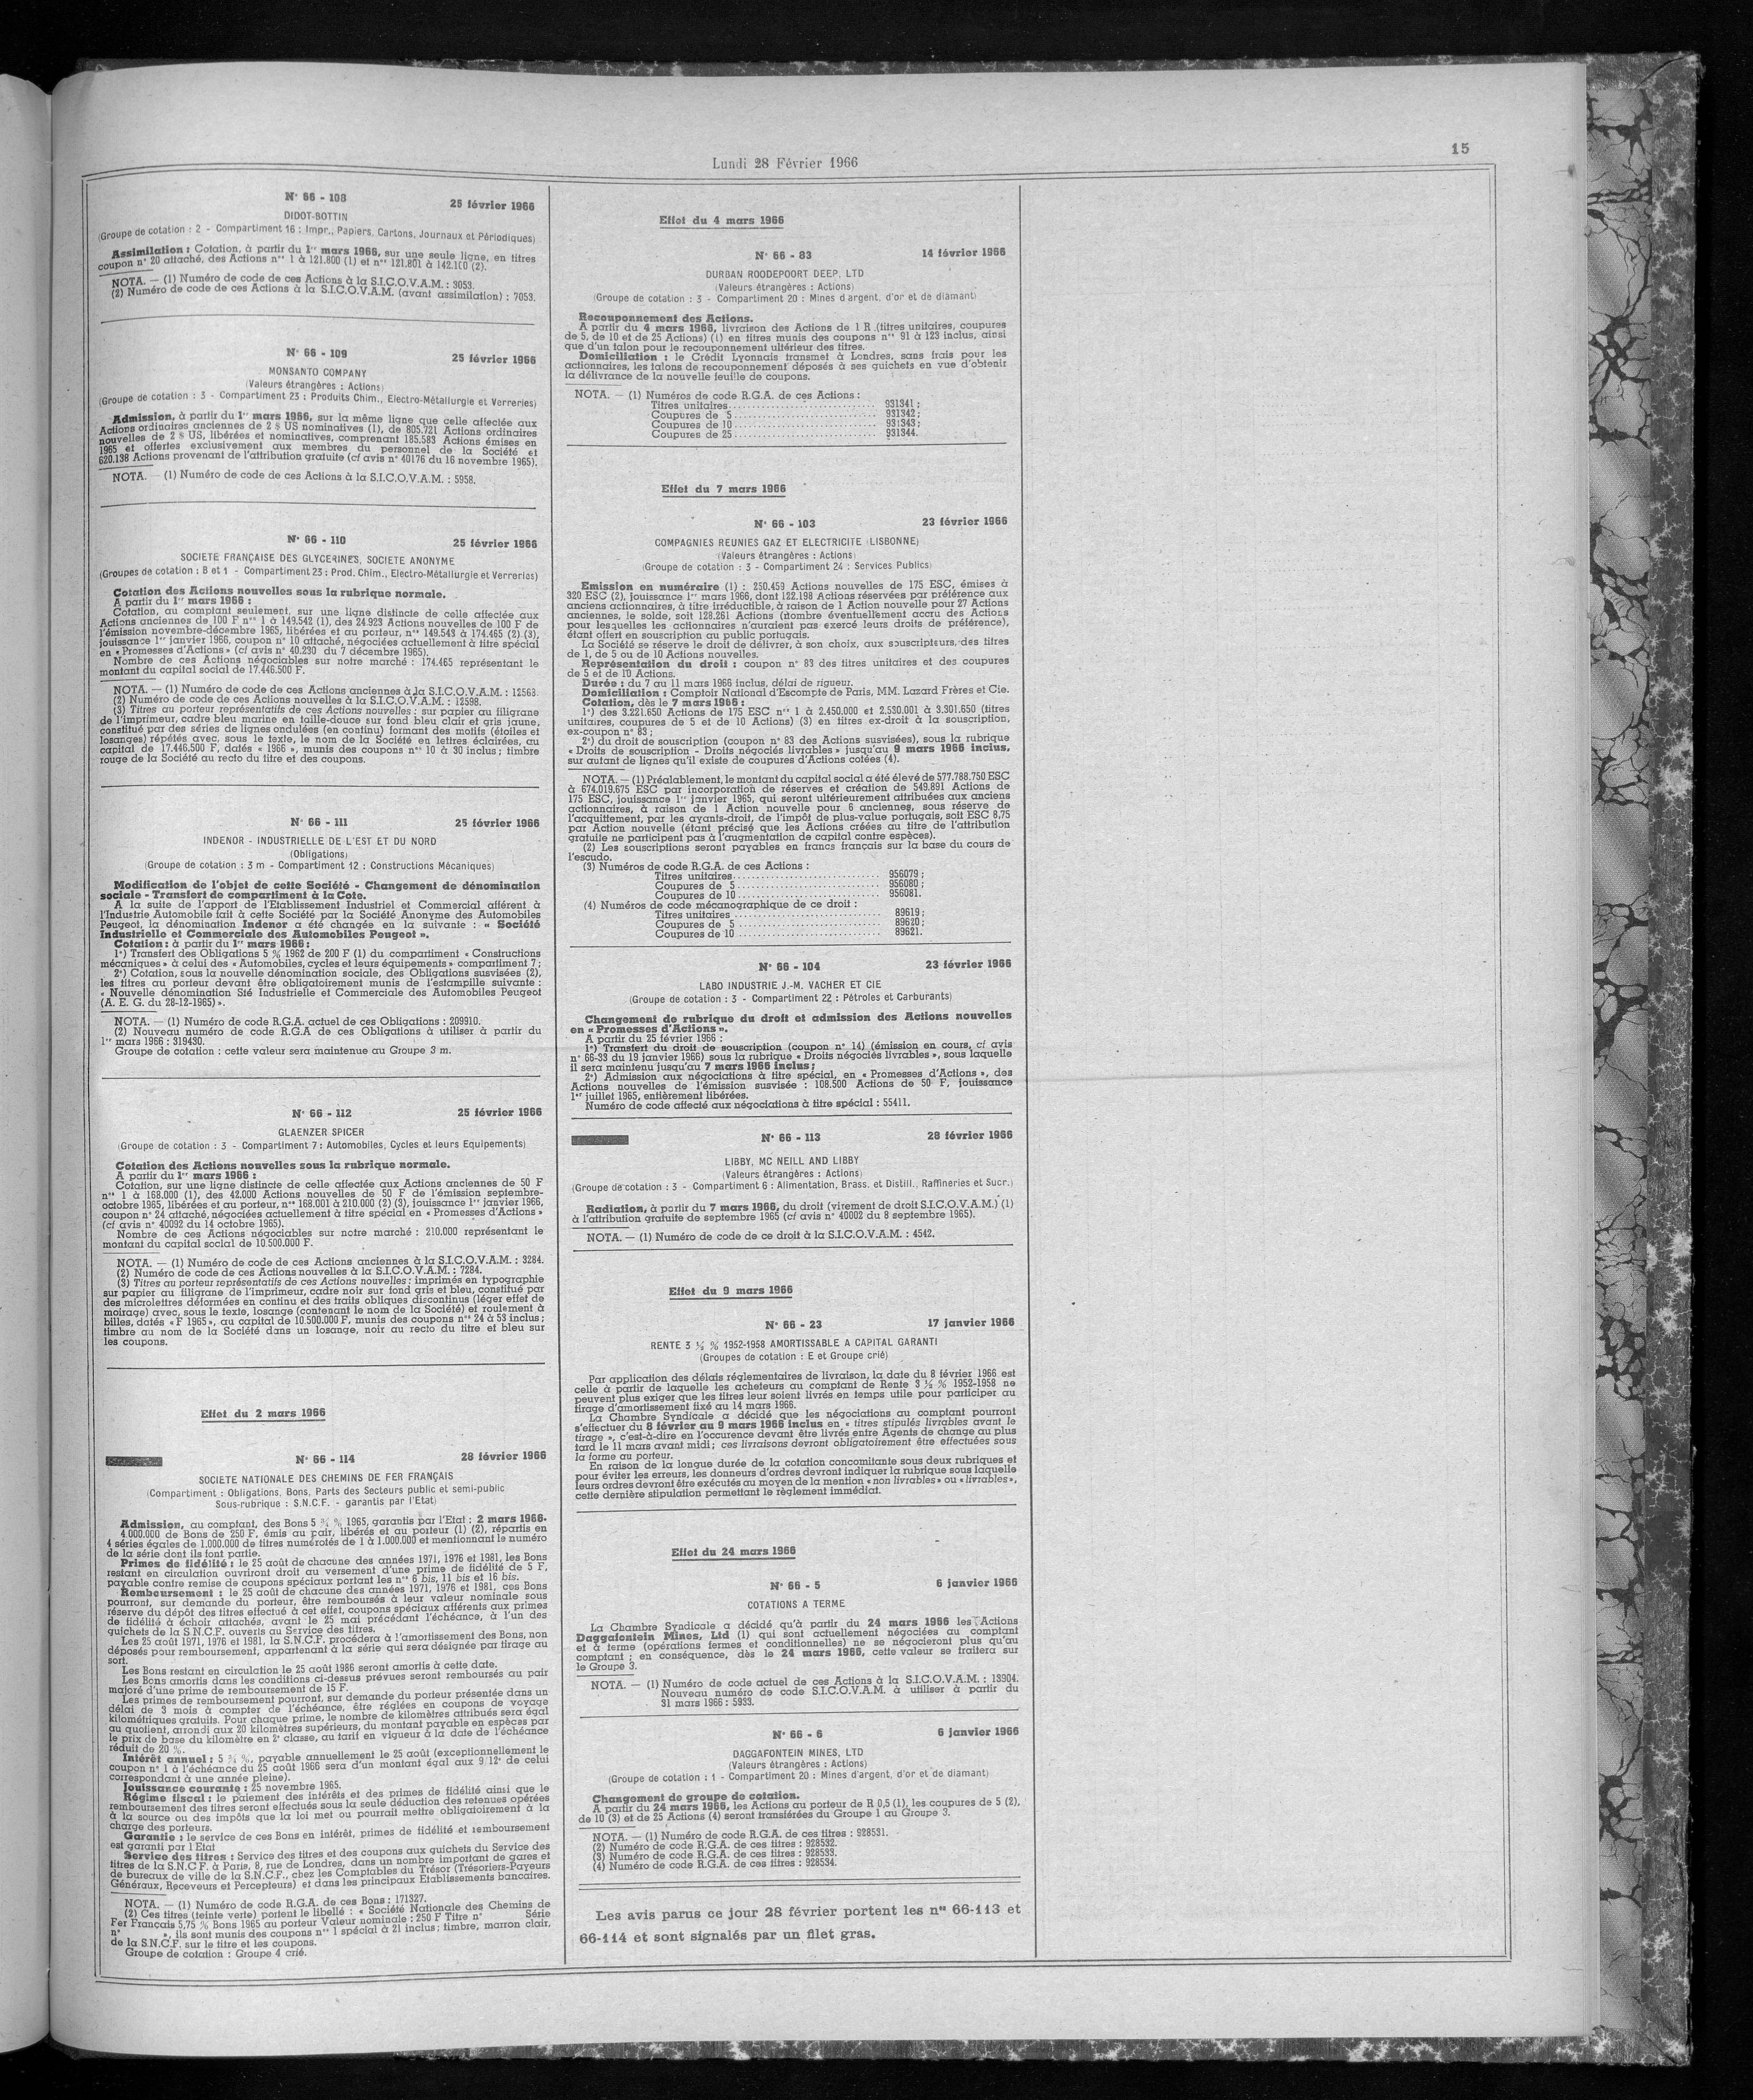 Lundi 28 Février 1966
15
N° 66 - 108
25 février 1966
DIDOT-BOTTIN
(Groupe de cotation : 2 - Compartiment 16 : Impr., Papiers, Cartons, Journaux et Périodiques)
Assimilation : Cotation, à partir du 1er mars 1966, sur une seule ligne, en titres
coupon n° 20 attaché, des Actions nos 1 à 121.800 (1) et nos 121.801 à 142.100 (2).
NOTA. — (1) Numéro de code de ces Actions à la S.I.C.O.V.A.M. : 3053.
(2) Numéro de code de ces Actions à la S.I.C.O.V.A.M. (avant assimilation) : 7053.
N° 66 - 109
25 février 1966
MONSANTO COMPANY
(Valeurs étrangères : Actions)
(Groupe de cotation : 3 - Compartiment 23 : Produits Chim., Electro-Métallurgie et Verreries)
Admission, à partir du 1er mars 1966, sur la même ligne que celle affectée aux
Actions ordinaires anciennes de 2 $ US nominatives (1), de 805.721 Actions ordinaires
nouvelles de 2 $ US, libérées et nominatives, comprenant 185.583 Actions émises en
1965 et offertes exclusivement aux membres du personnel de la Société et
620.138 Actions provenant de l'attribution gratuite (cf avis n° 40176 du 16 novembre 1965).
NOTA. — (1) Numéro de code de ces Actions à la S.I.C.O.V.A.M. : 5958.
N° 66 - 110
25 février 1966
SOCIETE FRANÇAISE DES GLYCERINES, SOCIETE ANONYME
(Groupes de cotation : B et 1 - Compartiment 23 : Prod. Chim., Electro-Métallurgie et Verreries)
Cotation des Actions nouvelles sous la rubrique normale.
A partir du 1er mars 1966 :
Cotation, au comptant seulement, sur une ligne distincte de celle affectée aux
Actions anciennes de 100 F nos 1 à 149.542 (1), des 24.923 Actions nouvelles de 100 F de
l'émission novembre-décembre 1965, libérées et au porteur, nos 149.543 à 174.465 (2) (3),
jouissance 1er janvier 1966, coupon n° 10 attaché, négociées actuellement à titre spécial
en « Promesses d'Actions » (cf avis n° 40.230 du 7 décembre 1965).
Nombre de ces Actions négociables sur notre marché : 174.465 représentant le
montant du capital social de 17.446.500 F.
NOTA. — (1) Numéro de code de ces Actions anciennes à la S.I.C.O.V.A.M. : 12563.
(2) Numéro de code de ces Actions nouvelles à la S.I.C.O.V.A.M. : 12598.
(3) Titres au porteur représentatifs de ces Actions nouvelles : sur papier au filigrane
de l'imprimeur, cadre bleu marine en taille-douce sur fond bleu clair et gris jaune,
constitué par des séries de lignes ondulées (en continu) formant des motifs (étoiles et
losanges) répétés avec, sous le texte, le nom de la Société en lettres éclairées, au
capital de 17.446.500 F, datés « 1966 », munis des coupons nos 10 à 30 inclus ; timbre
rouge de la Société au recto du titre et des coupons.
N° 66 - 111
25 février 1966
INDENOR - INDUSTRIELLE DE L'EST ET DU NORD
(Obligations)
(Groupe de cotation : 3 m - Compartiment 12 : Constructions Mécaniques)
Modification de l'objet de cette Société - Changement de dénomination
sociale - Transfert de compartiment à la Cote.
A la suite de l'apport de l'Etablissement Industriel et Commercial afférent à
l'Industrie Automobile fait à cette Société par la Société Anonyme des Automobiles
Peugeot, la dénomination Indenor a été changée en la suivante : « Société
Industrielle et Commerciale des Automobiles Peugeot ».
Cotation : à partir du 1er mars 1966 :
1°) Transfert des Obligations 5 % 1962 de 200 F (1) du compartiment « Constructions
mécaniques » à celui des « Automobiles, cycles et leurs équipements » compartiment 7 ;
2°) Cotation, sous la nouvelle dénomination sociale, des Obligations susvisées (2),
les titres au porteur devant être obligatoirement munis de l'estampille suivante :
« Nouvelle dénomination Sté Industrielle et Commerciale des Automobiles Peugeot
(A. E. G. du 28-12-1965) ».
NOTA. — (1) Numéro de code R.G.A. actuel de ces Obligations : 209910.
(2) Nouveau numéro de code R.G.A de ces Obligations à utiliser à partir du
1er mars 1966 : 319430.
Groupe de cotation : cette valeur sera maintenue au Groupe 3 m.
N° 66 - 112
25 février 1966
GLAENZER SPICER
(Groupe de cotation : 3 - Compartiment 7 : Automobiles, Cycles et leurs Equipements)
Cotation des Actions nouvelles sous la rubrique normale.
A partir du 1er mars 1966 :
Cotation, sur une ligne distincte de celle affectée aux Actions anciennes de 50 F
nos 1 à 168.000 (1), des 42.000 Actions nouvelles de 50 F de l'émission septembre-
octobre 1965, libérées et au porteur, nos 168.001 à 210.000 (2) (3), jouissance 1er janvier 1966,
coupon n° 24 attaché, négociées actuellement à titre spécial en « Promesses d'Actions »
(cf avis n° 40092 du 14 octobre 1965).
Nombre de ces Actions négociables sur notre marché : 210.000 représentant le
montant du capital social de 10.500.000 F.
NOTA. — (1) Numéro de code de ces Actions anciennes à la S.I.C.O.V.A.M. : 3284.
(2) Numéro de code de ces Actions nouvelles à la S.I.C.O.V.A.M. : 7284.
(3) Titres au porteur représentatifs de ces Actions nouvelles : imprimés en typographie
sur papier au filigrane de l'imprimeur, cadre noir sur fond gris et bleu, constitué par
des microlettres déformées en continu et des traits obliques discontinus (léger effet de
moirage) avec, sous le texte, losange (contenant le nom de la Société) et roulement à
billes, datés « F 1965 », au capital de 10.500.000 F, munis des coupons nos 24 à 53 inclus ;
timbre au nom de la Société dans un losange, noir au recto du titre et bleu sur
les coupons.
Effet du 2 mars 1966
N° 66 - 114
28 février 1966
SOCIETE NATIONALE DES CHEMINS DE FER FRANÇAIS
(Compartiment : Obligations, Bons, Parts des Secteurs public et semi-public
Sous-rubrique : S.N.C.F. - garantis par l'Etat)
Admission, au comptant, des Bons 5 ¾ % 1965, garantis par l'Etat : 2 mars 1966.
4.000.000 de Bons de 250 F, émis au pair, libérés et au porteur (1) (2), répartis en
4 séries égales de 1.000.000 de titres numérotés de 1 à 1.000.000 et mentionnant le numéro
de la série dont ils font partie.
Primes de fidélité : le 25 août de chacune des années 1971, 1976 et 1981, les Bons
restant en circulation ouvriront droit au versement d'une prime de fidélité de 5 F,
payable contre remise de coupons spéciaux portant les nos 6 bis, 11 bis et 16 bis.
Remboursement : le 25 août de chacune des années 1971, 1976 et 1981, ces Bons
pourront, sur demande du porteur, être remboursés à leur valeur nominale sous
réserve du dépôt des titres effectué à cet effet, coupons spéciaux afférents aux primes
de fidélité à échoir attachés, avant le 25 mai précédant l'échéance, à l'un des
guichets de la S.N.C.F. ouverts au Service des titres.
Les 25 août 1971, 1976 et 1981, la S.N.C.F. procédera à l'amortissement des Bons, non
déposés pour remboursement, appartenant à la série qui sera désignée par tirage au
sort.
Les Bons restant en circulation le 25 août 1986 seront amortis à cette date.
Les Bons amortis dans les conditions ci-dessus prévues seront remboursés au pair
majoré d'une prime de remboursement de 15 F.
Les primes de remboursement pourront, sur demande du porteur présentée dans un
délai de 3 mois à compter de l'échéance, être réglées en coupons de voyage
kilométriques gratuits. Pour chaque prime, le nombre de kilomètres attribués sera égal
au quotient, arrondi aux 20 kilomètres supérieurs, du montant payable en espèces par
le prix de base du kilomètre en 2e classe, au tarif en vigueur à la date de l'échéance
réduit de 20 %.
Intérêt annuel : 5 ¾ %, payable annuellement le 25 août (exceptionnellement le
coupon n° 1 à l'échéance du 25 août 1966 sera d'un montant égal aux 9/12e de celui
correspondant à une année pleine).
Jouissance courante : 25 novembre 1965.
Régime fiscal : le paiement des intérêts et des primes de fidélité ainsi que le
remboursement des titres seront effectués sous la seule déduction des retenues opérées
à la source ou des impôts que la loi met ou pourrait mettre obligatoirement à la
charge des porteurs.
Garantie : le service de ces Bons en intérêt, primes de fidélité et remboursement
est garanti par l'Etat
Service des titres : Service des titres et des coupons aux guichets du Service des
titres de la S.N.C F. à Paris, 8, rue de Londres, dans un nombre important de gares et
de bureaux de ville de la S.N.C.F., chez les Comptables du Trésor (Trésoriers-Payeurs
Généraux, Receveurs et Percepteurs) et dans les principaux Etablissements bancaires.
NOTA. — (1) Numéro de code R.G.A. de ces Bons : 171327.
(2) Ces titres (teinte verte) portent le libellé : « Société Nationale des Chemins de
Fer Français 5,75 % Bons 1965 au porteur Valeur nominale : 250 F Titre n° Série
n° », ils sont munis des coupons nos 1 spécial à 21 inclus ; timbre, marron clair,
de la S.N.C.F. sur le titre et les coupons.
Groupe de cotation : Groupe 4 crié.
Effet du 4 mars 1966
N° 66 - 83
14 février 1966
DURBAN ROODEPOORT DEEP, LTD
(Valeurs étrangères : Actions)
(Groupe de cotation : 3 - Compartiment 20 : Mines d'argent, d'or et de diamant)
Recouponnement des Actions.
A partir du 4 mars 1966, livraison des Actions de 1 R (titres unitaires, coupures
de 5, de 10 et de 25 Actions) (1) en titres munis des coupons nos 91 à 123 inclus, ainsi
que d'un talon pour le recouponnement ultérieur des titres.
Domiciliation : le Crédit Lyonnais transmet à Londres, sans frais pour les
actionnaires, les talons de recouponnement déposés à ses guichets en vue d'obtenir
la délivrance de la nouvelle feuille de coupons.
NOTA. — (1) Numéros de code R.G.A. de ces Actions :
Titres unitaires.............................. 931341 ;
Coupures de 5.............................. 931342 ;
Coupures de 10.............................. 931343 ;
Coupures de 25.............................. 931344.
Effet du 7 mars 1966
N° 66 - 103
23 février 1966
COMPAGNIES REUNIES GAZ ET ELECTRICITE (LISBONNE)
(Valeurs étrangères : Actions)
(Groupe de cotation : 3 - Compartiment 24 : Services Publics)
Emission en numéraire (1) : 250.459 Actions nouvelles de 175 ESC, émises à
320 ESC (2), jouissance 1er mars 1966, dont 122.198 Actions réservées par préférence aux
anciens actionnaires, à titre irréductible, à raison de 1 Action nouvelle pour 27 Actions
anciennes, le solde, soit 128.261 Actions (nombre éventuellement accru des Actions
pour lesquelles les actionnaires n'auraient pas exercé leurs droits de préférence),
étant offert en souscription au public portugais.
La Société se réserve le droit de délivrer, à son choix, aux souscripteurs, des titres
de 1, de 5 ou de 10 Actions nouvelles.
Représentation du droit : coupon n° 83 des titres unitaires et des coupures
de 5 et de 10 Actions.
Durée : du 7 au 11 mars 1966 inclus, délai de rigueur.
Domiciliation : Comptoir National d'Escompte de Paris, MM. Lazard Frères et Cie.
Cotation, dès le 7 mars 1966 :
1°) des 3.221.650 Actions de 175 ESC nos 1 à 2.450.000 et 2.530.001 à 3.301.650 (titres
unitaires, coupures de 5 et de 10 Actions) (3) en titres ex-droit à la souscription,
ex-coupon n° 83 ;
2°) du droit de souscription (coupon n° 83 des Actions susvisées), sous la rubrique
« Droits de souscription - Droits négociés livrables » jusqu'au 9 mars 1966 inclus,
sur autant de lignes qu'il existe de coupures d'Actions cotées (4).
NOTA. — (1) Préalablement, le montant du capital social a été élevé de 577.788.750 ESC
à 674.019.675 ESC par incorporation de réserves et création de 549.891 Actions de
175 ESC, jouissance 1er janvier 1965, qui seront ultérieurement attribuées aux anciens
actionnaires, à raison de 1 Action nouvelle pour 6 anciennes, sous réserve de
l'acquittement, par les ayants-droit, de l'impôt de plus-value portugais, soit ESC 8,75
par Action nouvelle (étant précisé que les Actions créées au titre de l'attribution
gratuite ne participent pas à l'augmentation de capital contre espèces).
(2) Les souscriptions seront payables en francs français sur la base du cours de
l'escudo.
(3) Numéros de code R.G.A. de ces Actions :
Titres unitaires.............................. 956079 ;
Coupures de 5.............................. 956080 ;
Coupures de 10.............................. 956081.
(4) Numéros de code mécanographique de ce droit :
Titres unitaires .............................. 89619 ;
Coupures de 5.............................. 89620 ;
Coupures de 10.............................. 89621.
N° 66 - 104
23 février 1966
LABO INDUSTRIE J.-M. VACHER ET CIE
(Groupe de cotation : 3 - Compartiment 22 : Pétroles et Carburants)
Changement de rubrique du droit et admission des Actions nouvelles
en « Promesses d'Actions ».
A partir du 25 février 1966 :
1°) Transfert du droit de souscription (coupon n° 14) (émission en cours, cf avis
n° 66-33 du 19 janvier 1966) sous la rubrique « Droits négociés livrables », sous laquelle
il sera maintenu jusqu'au 7 mars 1966 inclus ;
2°) Admission aux négociations à titre spécial, en « Promesses d'Actions », des
Actions nouvelles de l'émission susvisée : 108.500 Actions de 50 F, jouissance
1er juillet 1965, entièrement libérées.
Numéro de code affecté aux négociations à titre spécial : 55411.
N° 66 - 113
28 février 1966
LIBBY, MC NEILL AND LIBBY
(Valeurs étrangères : Actions)
(Groupe de cotation : 3 - Compartiment 6 : Alimentation, Brass. et Distill., Raffineries et Sucr.)
Radiation, à partir du 7 mars 1966, du droit (virement de droit S.I.C.O.V.A.M.) (1)
à l'attribution gratuite de septembre 1965 (cf avis n° 40002 du 8 septembre 1965).
NOTA. — (1) Numéro de code de ce droit à la S.I.C.O.V.A.M. : 4542.
Effet du 9 mars 1966
N° 66 - 23
17 janvier 1966
RENTE 3 ½ % 1952-1958 AMORTISSABLE A CAPITAL GARANTI
(Groupes de cotation : E et Groupe crié)
Par application des délais réglementaires de livraison, la date du 8 février 1966 est
celle à partir de laquelle les acheteurs au comptant de Rente 3 ½ % 1952-1958 ne
peuvent plus exiger que les titres leur soient livrés en temps utile pour participer au
tirage d'amortissement fixé au 14 mars 1966.
La Chambre Syndicale a décidé que les négociations au comptant pourront
s'effectuer du 8 février au 9 mars 1966 inclus en « titres stipulés livrables avant le
tirage », c'est-à-dire en l'occurence devant être livrés entre Agents de change au plus
tard le 11 mars avant midi ; ces livraisons devront obligatoirement être effectuées sous
la forme au porteur.
En raison de la longue durée de la cotation concomitante sous deux rubriques et
pour éviter les erreurs, les donneurs d'ordres devront indiquer la rubrique sous laquelle
leurs ordres devront être exécutés au moyen de la mention « non livrables » ou « livrables »,
cette dernière stipulation permettant le règlement immédiat.
Effet du 24 mars 1966
N° 66 - 5
6 janvier 1966
COTATIONS A TERME
La Chambre Syndicale a décidé qu'à partir du 24 mars 1966 les Actions
Daggafontein Mines, Ltd (1) qui sont actuellement négociées au comptant
et à terme (opérations fermes et conditionnelles) ne se négocieront plus qu'au
comptant ; en conséquence, dès le 24 mars 1966, cette valeur se traitera sur
le Groupe 3.
NOTA. — (1) Numéro de code actuel de ces Actions à la S.I.C.O.V.A.M. : 13904.
Nouveau numéro de code S.I.C.O.V.A.M. à utiliser à partir du
31 mars 1966 : 5933.
N° 66 - 6
6 janvier 1966
DAGGAFONTEIN MINES, LTD
(Valeurs étrangères : Actions)
(Groupe de cotation : 1 - Compartiment 20 : Mines d'argent, d'or et de diamant)
Changement de groupe de cotation.
A partir du 24 mars 1966, les Actions au porteur de R 0,5 (1), les coupures de 5 (2),
de 10 (3) et de 25 Actions (4) seront transférées du Groupe 1 au Groupe 3.
NOTA. — (1) Numéro de code R.G.A. de ces titres : 928531.
(2) Numéro de code R.G.A. de ces titres : 928532.
(3) Numéro de code R.G.A. de ces titres : 928533.
(4) Numéro de code R.G.A. de ces titres : 928534.
Les avis parus ce jour 28 février portent les nos 66-113 et
66-114 et sont signalés par un filet gras.